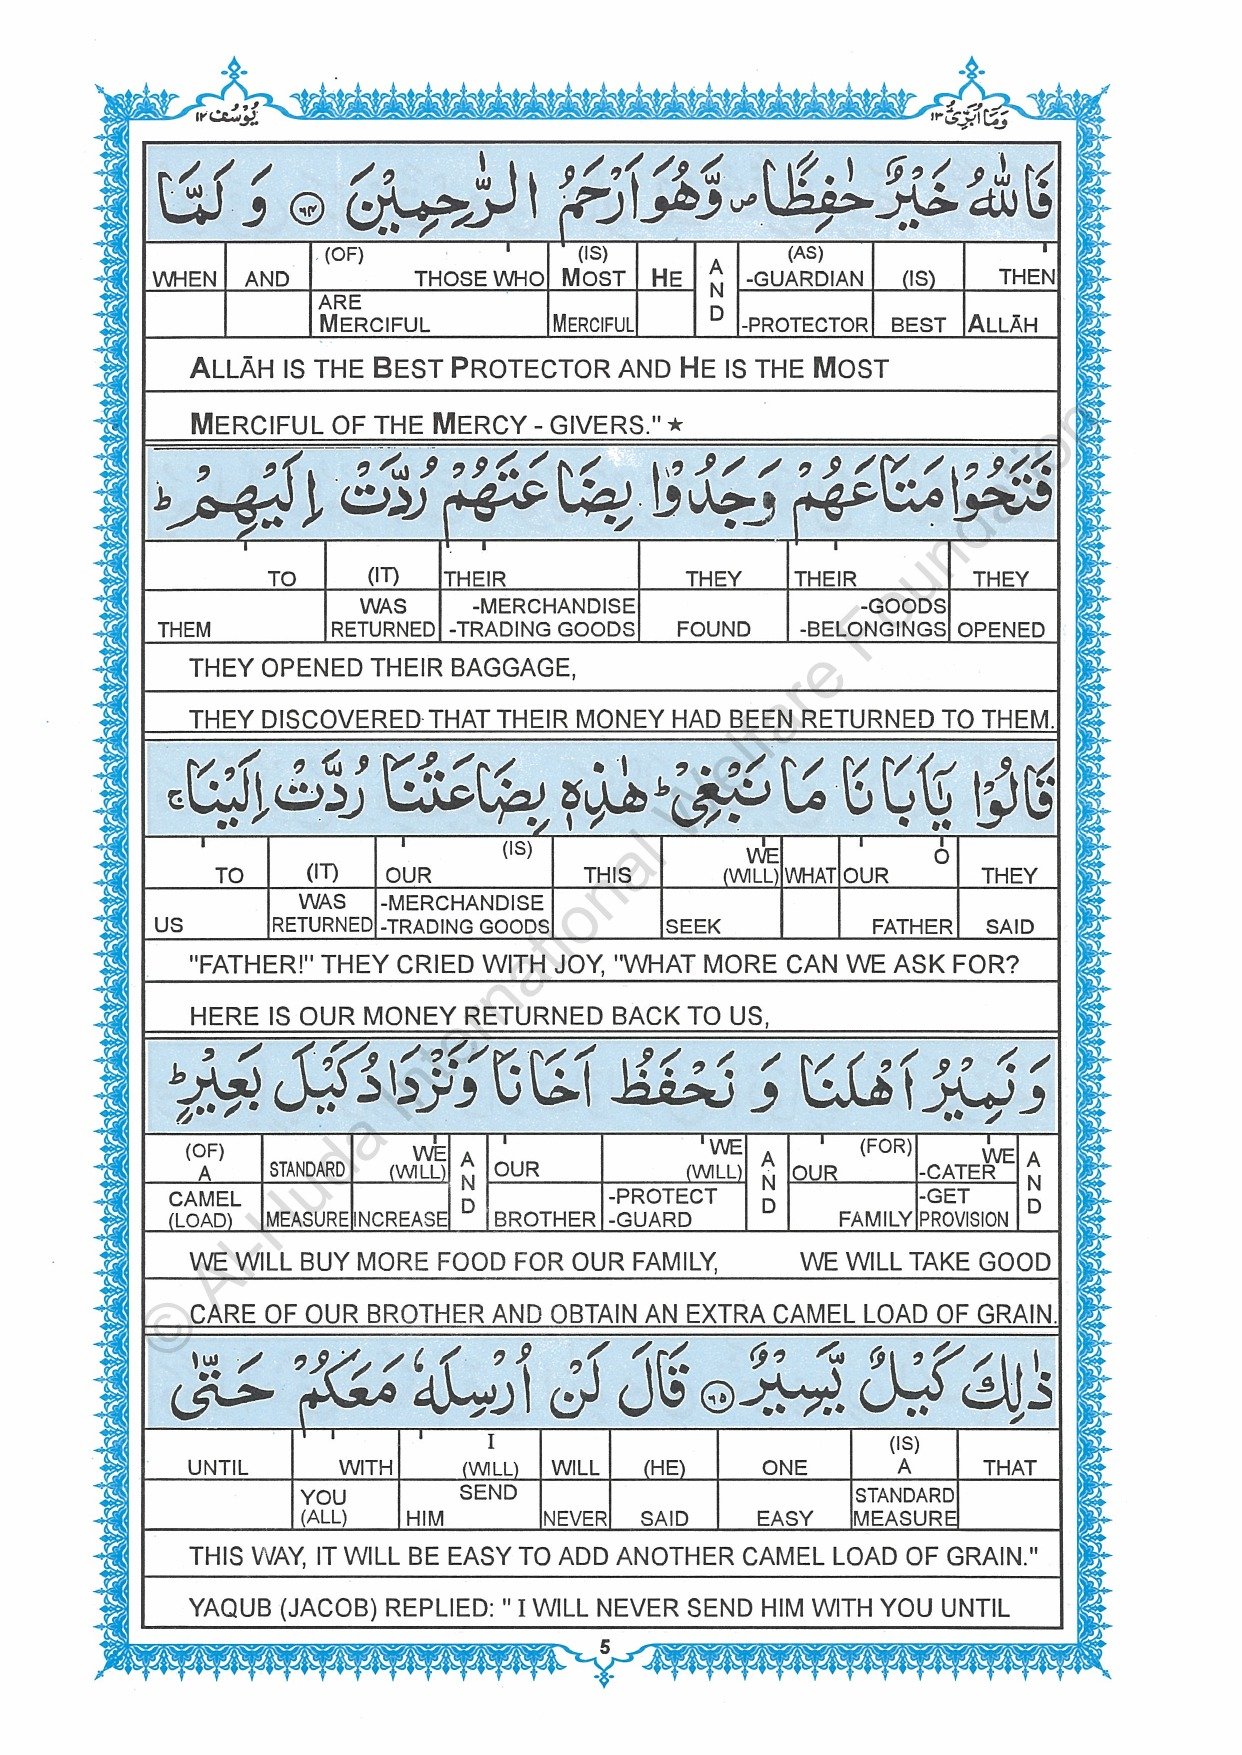 یُوْسُف ١٢ وَمَآ اُبَرِّئُ ١٣
فَاللّٰهُ خَيْرٌ حٰفِظًا ۪ وَّهُوَ اَرْحَمُ الرّٰحِمِيْنَ ﴿٦٤﴾ وَ لَمَّا
(OF) (IS) (AS)
WHEN AND THOSE WHO MOST HE AND -GUARDIAN (IS) THEN
ARE
MERCIFUL MERCIFUL -PROTECTOR BEST ALLĀH
ALLĀH IS THE BEST PROTECTOR AND HE IS THE MOST
MERCIFUL OF THE MERCY - GIVERS." ★
فَتَحُوْا مَتَاعَهُمْ وَجَدُوْا بِضَاعَتَهُمْ رُدَّتْ اِلَيْهِمْ ؕ
TO (IT) THEIR THEY THEIR THEY
WAS -MERCHANDISE -GOODS
THEM RETURNED -TRADING GOODS FOUND -BELONGINGS OPENED
THEY OPENED THEIR BAGGAGE,
THEY DISCOVERED THAT THEIR MONEY HAD BEEN RETURNED TO THEM.
قَالُوْا يٰۤاَبَانَا مَا نَبْغِيْ ؕ هٰذِهٖ بِضَاعَتُنَا رُدَّتْ اِلَيْنَا ۚ
(IS) WE O
TO (IT) OUR THIS (WILL) WHAT OUR THEY
WAS -MERCHANDISE
US RETURNED -TRADING GOODS SEEK FATHER SAID
"FATHER!" THEY CRIED WITH JOY, "WHAT MORE CAN WE ASK FOR?
HERE IS OUR MONEY RETURNED BACK TO US,
وَ نَمِيْرُ اَهْلَنَا وَ نَحْفَظُ اَخَانَا وَنَزْدَادُ كَيْلَ بَعِيْرٍ ؕ
(OF) WE WE (FOR) WE
A STANDARD (WILL) AND OUR (WILL) AND OUR -CATER AND
CAMEL -PROTECT -GET
(LOAD) MEASURE INCREASE BROTHER -GUARD FAMILY PROVISION
WE WILL BUY MORE FOOD FOR OUR FAMILY, WE WILL TAKE GOOD
CARE OF OUR BROTHER AND OBTAIN AN EXTRA CAMEL LOAD OF GRAIN.
ذٰلِكَ كَيْلٌ يَّسِيْرٌ ﴿٦٥﴾ قَالَ لَنْ اُرْسِلَهٗ مَعَكُمْ حَتّٰى
I (IS)
UNTIL WITH (WILL) WILL (HE) ONE A THAT
YOU SEND STANDARD
(ALL) HIM NEVER SAID EASY MEASURE
THIS WAY, IT WILL BE EASY TO ADD ANOTHER CAMEL LOAD OF GRAIN."
YAQUB (JACOB) REPLIED: " I WILL NEVER SEND HIM WITH YOU UNTIL
5
© Al-Huda International Welfare Foundation